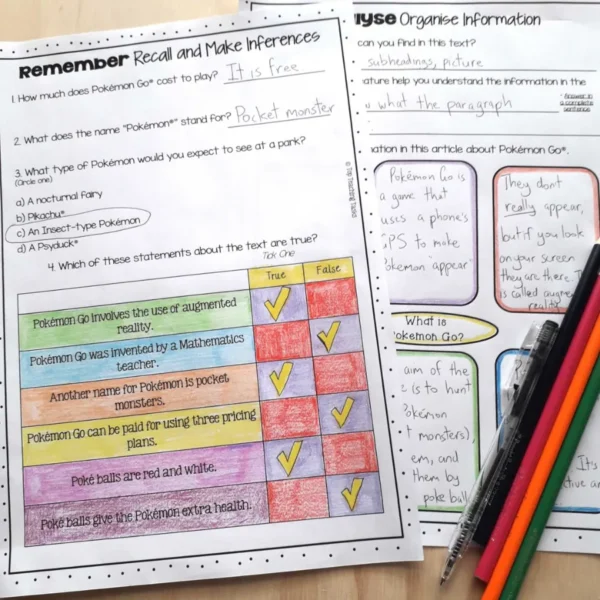 Remember Recall and Make Inferences
1. How much does Pokémon Go* cost to play? It is free
2. What does the name "Pokémon*" stand for? Pocket monster
3. What type of Pokémon would you expect to see at a park?
(Circle one)
a) A nocturnal fairy
b) Pikachu*
c) An Insect-type Pokémon
d) A Psyduck*
4. Which of these statements about the text are true?
Tick One
True False
Pokémon Go involves the use of augmented
reality.
Pokémon Go was invented by a Mathematics
teacher.
Another name for Pokémon is pocket
monsters.
Pokémon Go can be paid for using three pricing
plans.
Poké balls are red and white.
Poké balls give the Pokémon extra health.
© Top Teaching Tasks
lyse Organise Information
can you find in this text?
subheadings, picture
ature help you understand the information in the
what the paragraph
* Answer in
a complete
sentence
ation in this article about Pokémon Go*.
Pokémon Go is
a game that
uses a phone's
GPS to make
Pokemon "appear"
They don't
really appear,
but if you look
on your screen
they are there. I
is called augme
reality
What is
Pokemon Go?
aim of the
is to hunt
Pokémon
t monsters),
em, and
them by
poke ball
It's
tive an